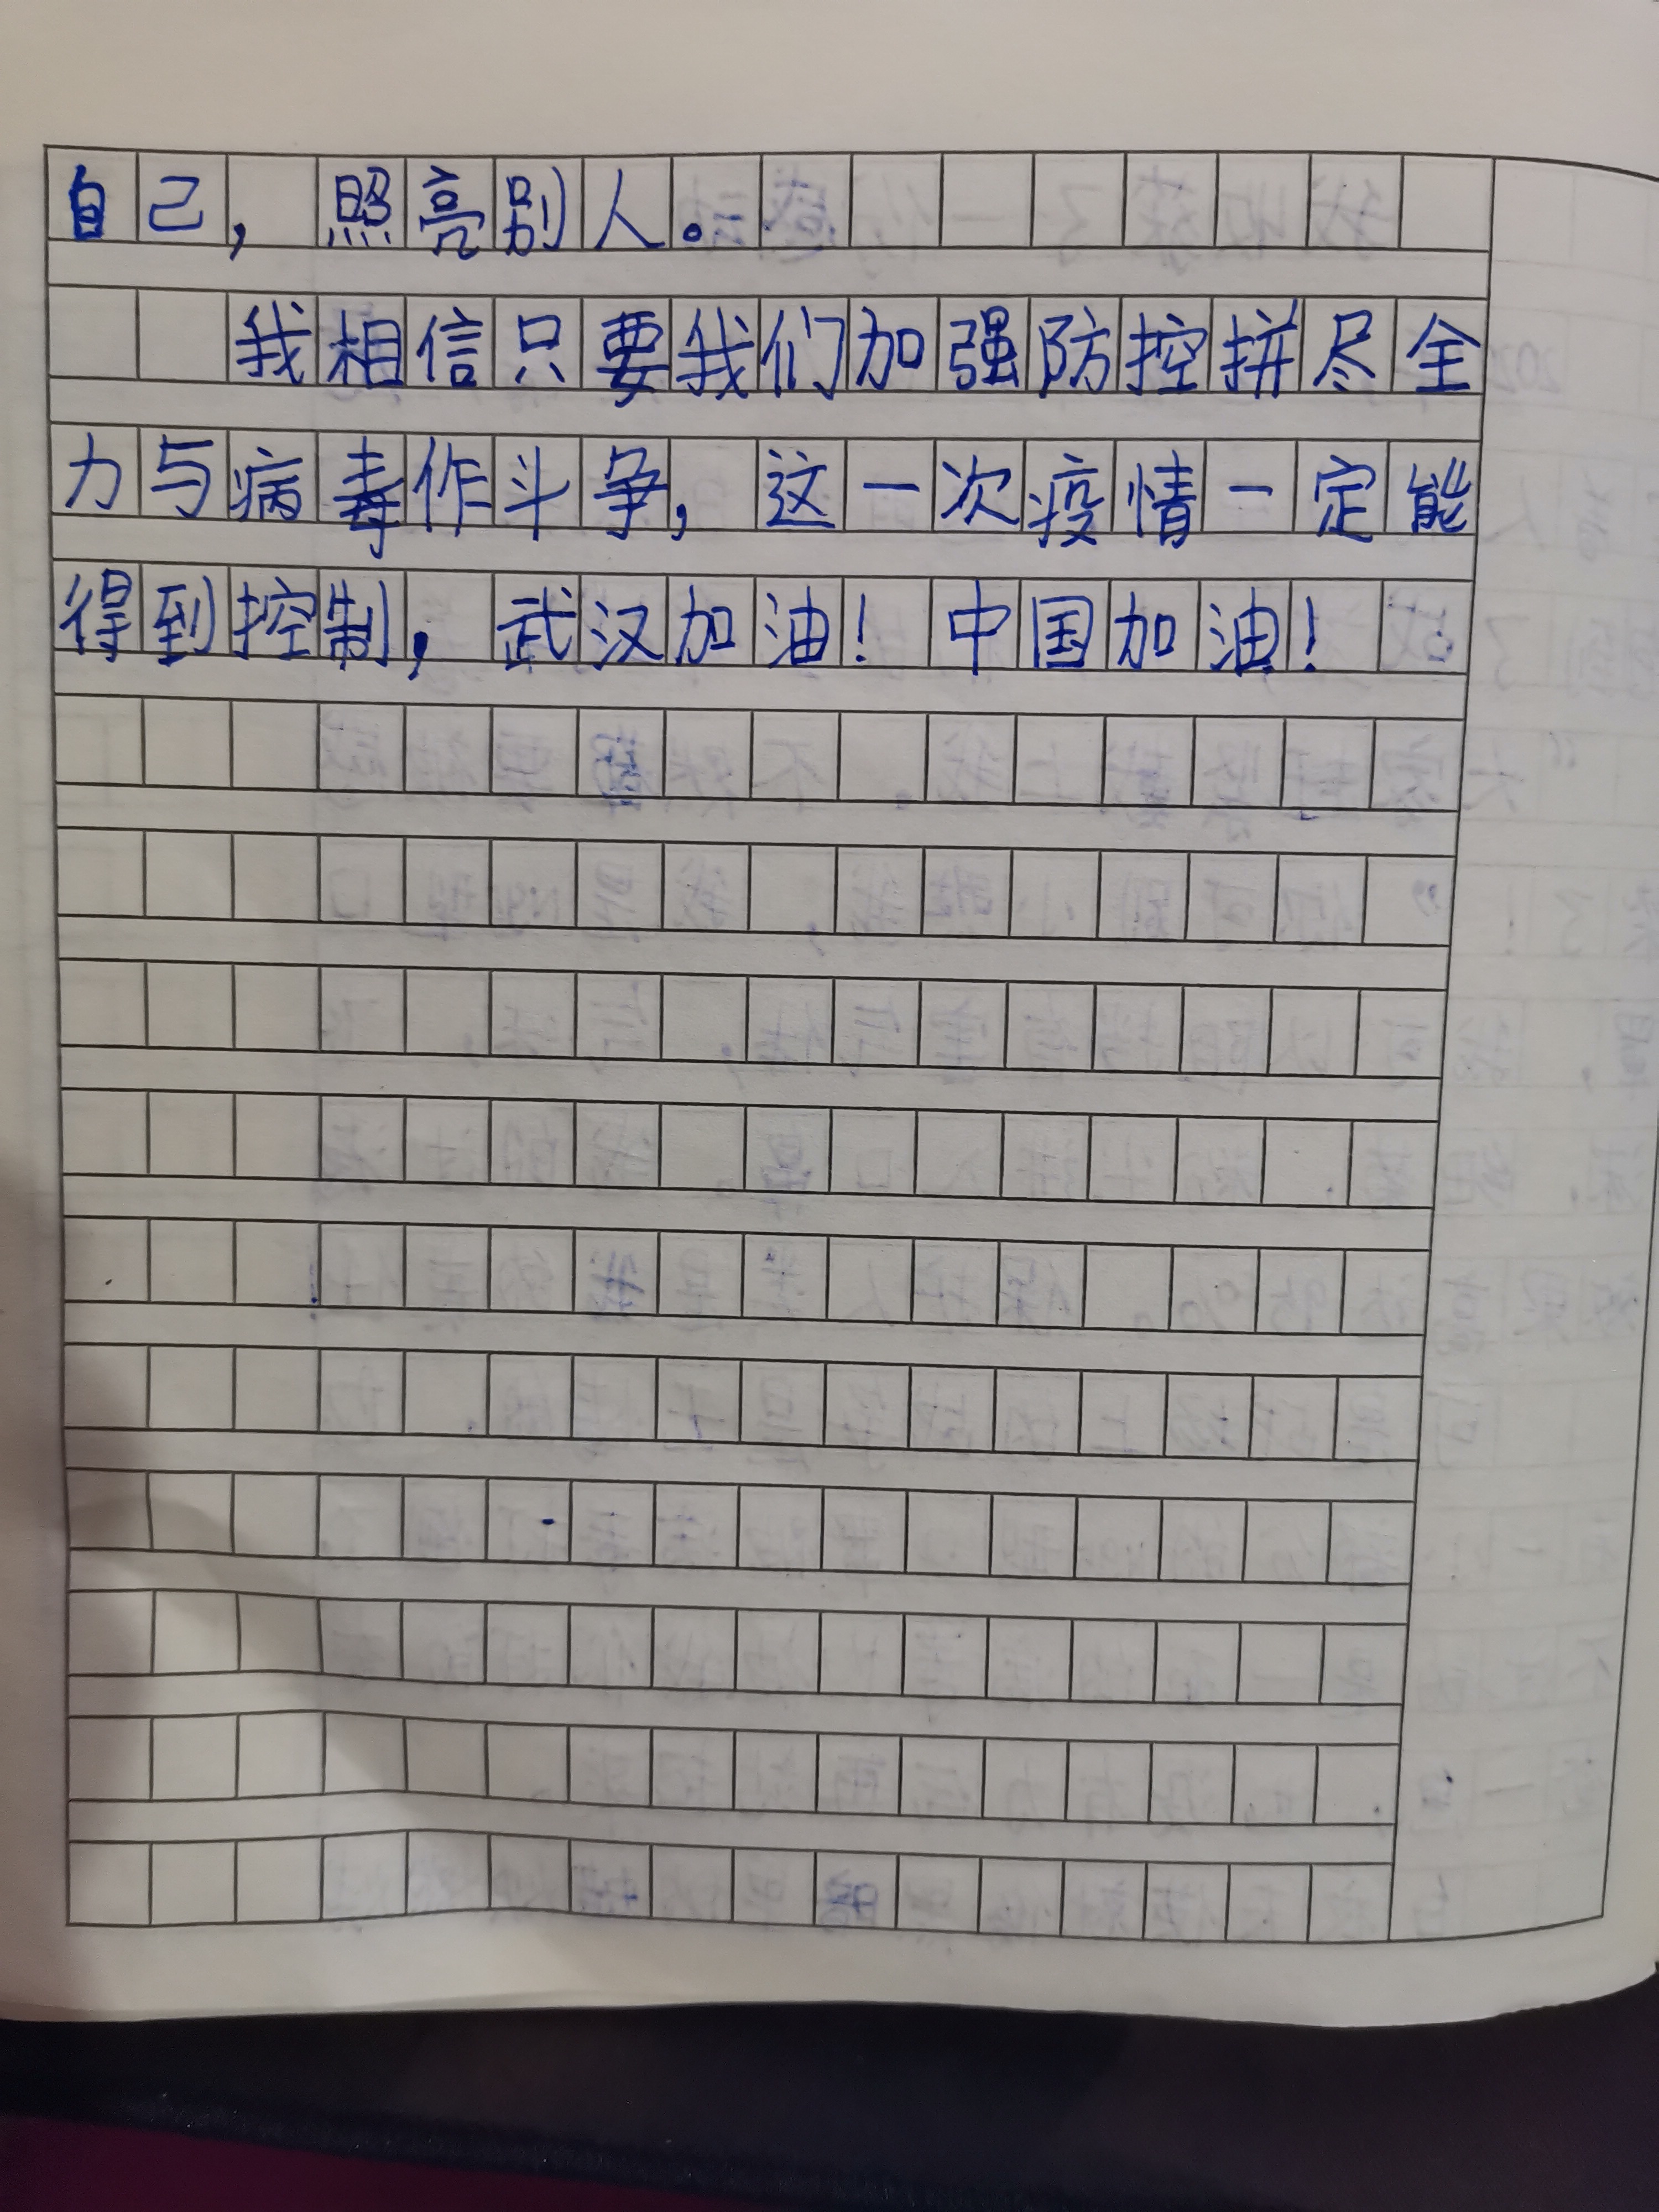 自己，照亮别人。
我相信只要我们加强防控拼尽全
力与病毒作斗争，这一次疫情一定能
得到控制，武汉加油！中国加油！